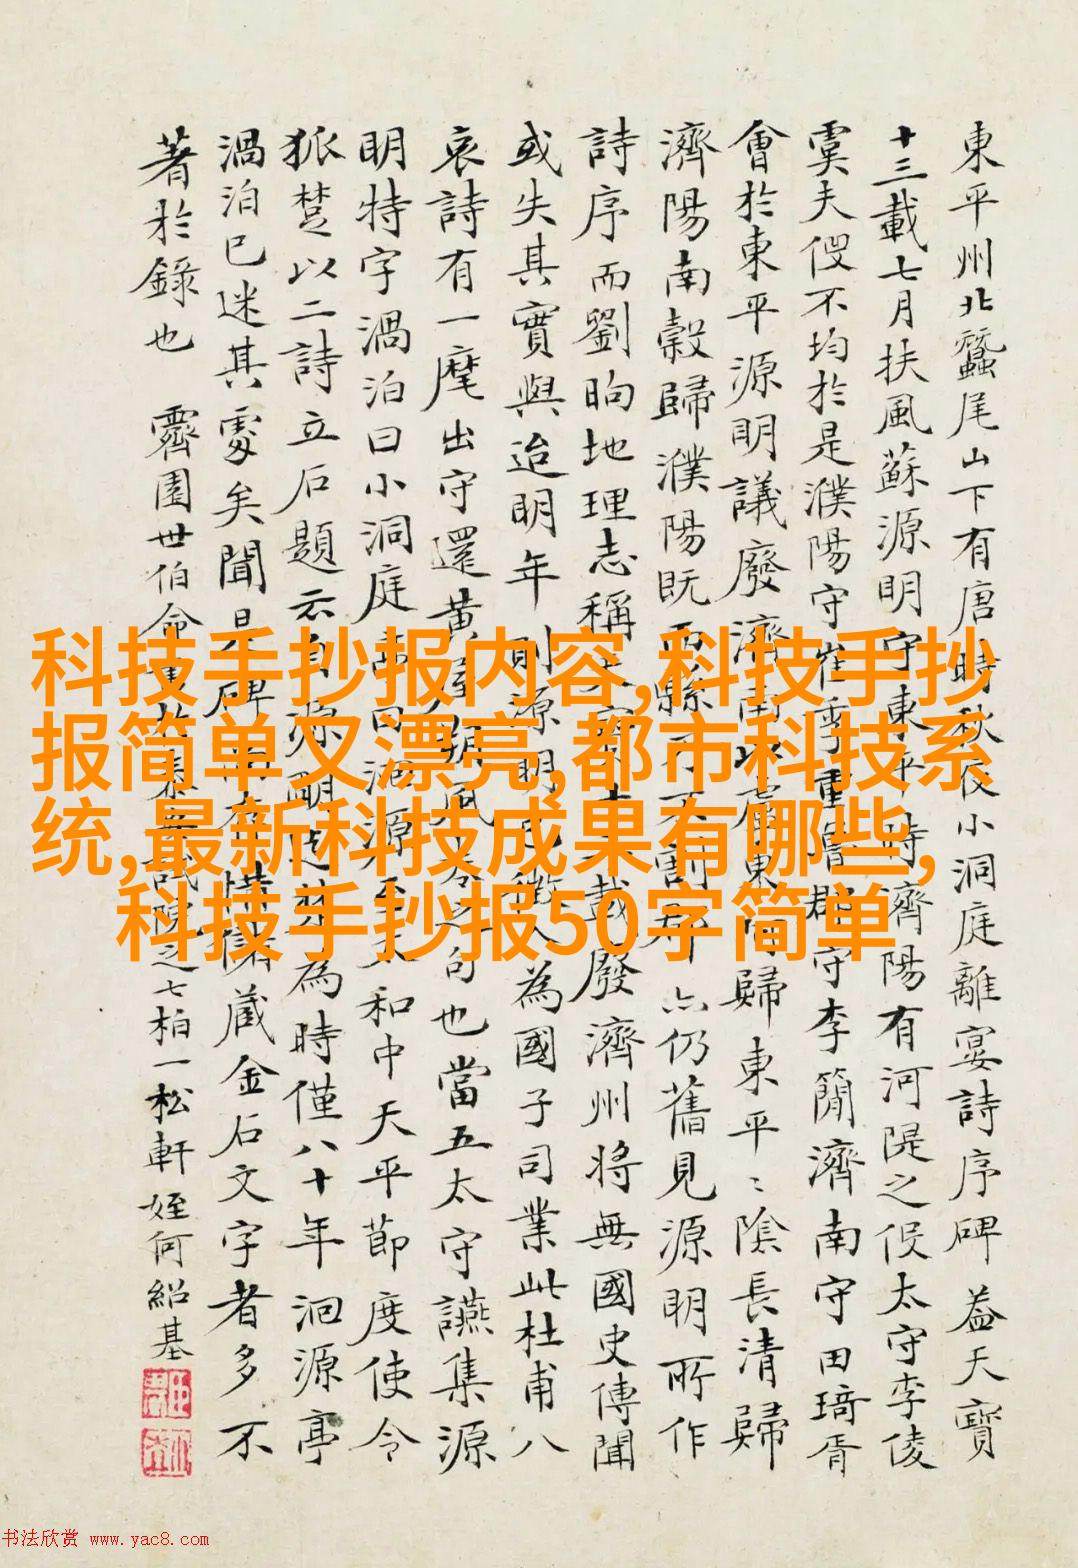 東平州北蠶尾山下有唐時秋夜小洞庭離宴詩序碑 蓋天寶
十三載七月扶風蘇源明守東平時濟陽有河隄之役太守李倰
虞夫役不均於是濮陽守崔季重魯郡守李簡濟南守田琦胥
會於東平源明議廢濟南歸東平歸東平陰長清歸
濟陽南穀歸濮陽既
仍舊見源明所作
詩序而劉昫地理志稱
載廢濟州將無國史傳聞
或失其實與迨明年則源明
人為國子司業此杜甫八
哀詩有一麾出守還黃屋朔風
句也當五太守讌集源
明特字渦泊曰小洞庭
和中天平節度使令
狐楚以二詩立石題云
源明
為時僅八十年洄源亭
渦泊已迷其處矣聞是碑
藏金石文字者多不
著於錄也 霽園世伯命
之七柏一松軒 姪何紹基
科技手抄报内容,科技手抄
报简单又漂亮,都市科技系
统,最新科技成果有哪些,
科技手抄报50字简单
书法欣赏 www.yac8.com